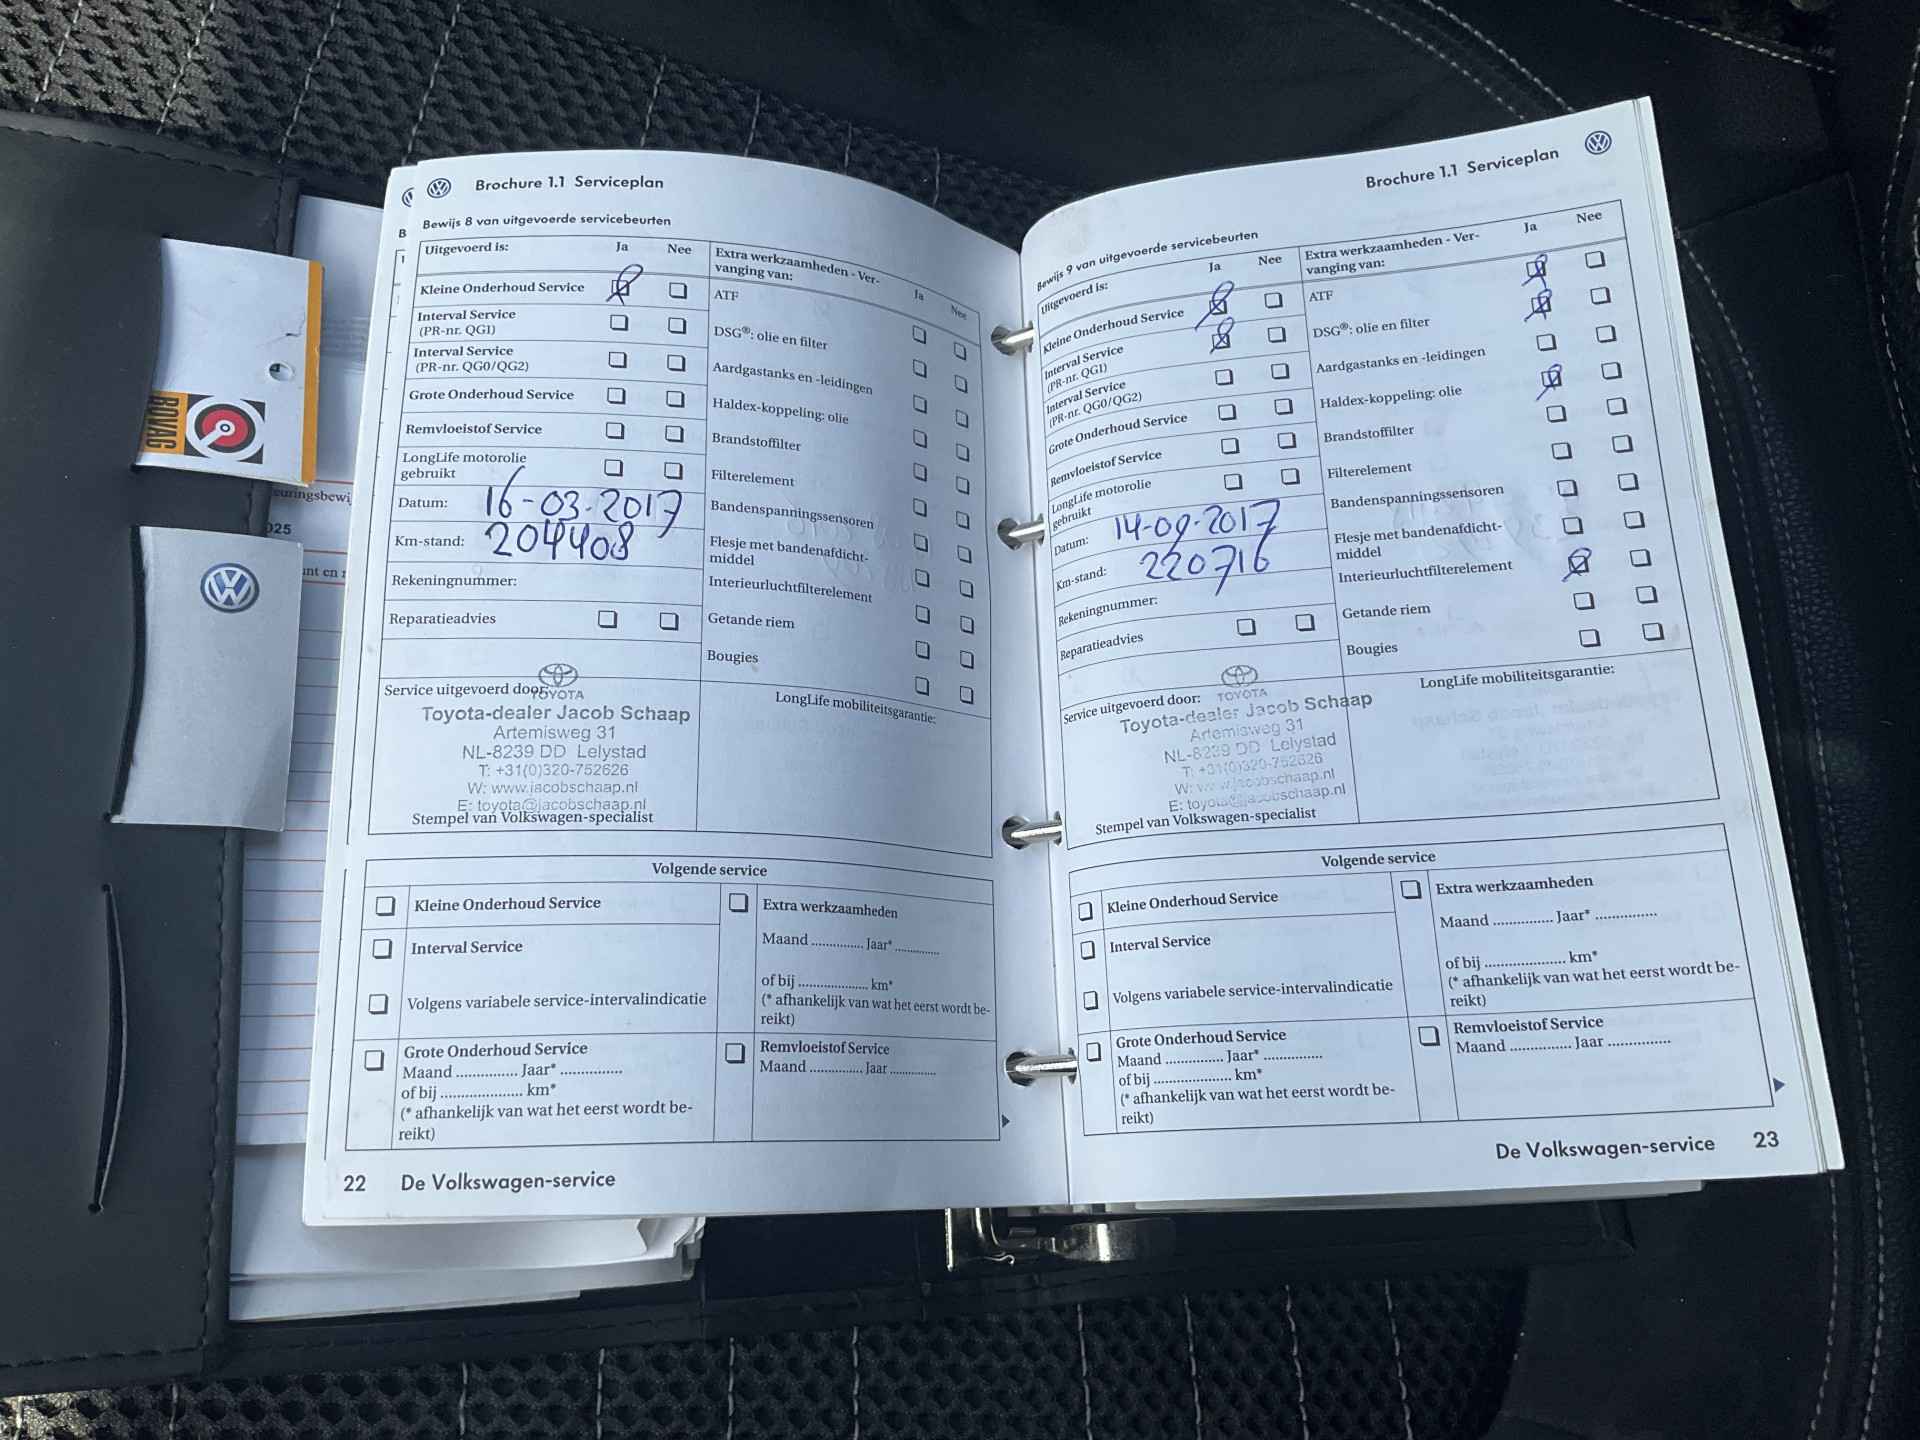 Brochure 1.1 Serviceplan
Bewijs 8 van uitgevoerde servicebeurten
Uitgevoerd is: Ja Nee
Kleine Onderhoud Service
Interval Service
(PR-nr. QG1)
Interval Service
(PR-nr. QG0/QG2)
Grote Onderhoud Service
Remvloeistof Service
LongLife motorolie
gebruikt
Datum: 16-03-2017
Km-stand: 204408
Rekeningnummer:
Reparatieadvies
Extra werkzaamheden - Ver-
vanging van: Ja Nee
ATF
DSG®: olie en filter
Aardgastanks en -leidingen
Haldex-koppeling: olie
Brandstoffilter
Filterelement
Bandenspanningssensoren
Flesje met bandenafdicht-
middel
Interieurluchtfilterelement
Getande riem
Bougies
Service uitgevoerd door:
TOYOTA
Toyota-dealer Jacob Schaap
Artemisweg 31
NL-8239 DD Lelystad
T: +31(0)320-752626
W: www.jacobschaap.nl
E: toyota@jacobschaap.nl
Stempel van Volkswagen-specialist
LongLife mobiliteitsgarantie:
Volgende service
Kleine Onderhoud Service
Interval Service
Volgens variabele service-intervalindicatie
Grote Onderhoud Service
Maand ............... Jaar* ...............
of bij .................... km*
(* afhankelijk van wat het eerst wordt be-
reikt)
Extra werkzaamheden
Maand ............. Jaar* ...........
of bij .................. km*
(* afhankelijk van wat het eerst wordt be-
reikt)
Remvloeistof Service
Maand ............. Jaar ............
22 De Volkswagen-service
Brochure 1.1 Serviceplan
Bewijs 9 van uitgevoerde servicebeurten
Uitgevoerd is: Ja Nee
Kleine Onderhoud Service
Interval Service
(PR-nr. QG1)
Interval Service
(PR-nr. QG0/QG2)
Grote Onderhoud Service
Remvloeistof Service
LongLife motorolie
gebruikt
Datum: 14-09-2017
Km-stand: 220716
Rekeningnummer:
Reparatieadvies
Extra werkzaamheden - Ver-
vanging van: Ja Nee
ATF
DSG®: olie en filter
Aardgastanks en -leidingen
Haldex-koppeling: olie
Brandstoffilter
Filterelement
Bandenspanningssensoren
Flesje met bandenafdicht-
middel
Interieurluchtfilterelement
Getande riem
Bougies
Service uitgevoerd door:
TOYOTA
Toyota-dealer Jacob Schaap
Artemisweg 31
NL-8239 DD Lelystad
T: +31(0)320-752626
W: www.jacobschaap.nl
E: toyota@jacobschaap.nl
Stempel van Volkswagen-specialist
LongLife mobiliteitsgarantie:
Volgende service
Kleine Onderhoud Service
Interval Service
Volgens variabele service-intervalindicatie
Grote Onderhoud Service
Maand .............. Jaar* ...............
of bij .................... km*
(* afhankelijk van wat het eerst wordt be-
reikt)
Extra werkzaamheden
Maand ............... Jaar* ...............
of bij .................... km*
(* afhankelijk van wat het eerst wordt be-
reikt)
Remvloeistof Service
Maand ............... Jaar ...............
De Volkswagen-service 23
BOVAG